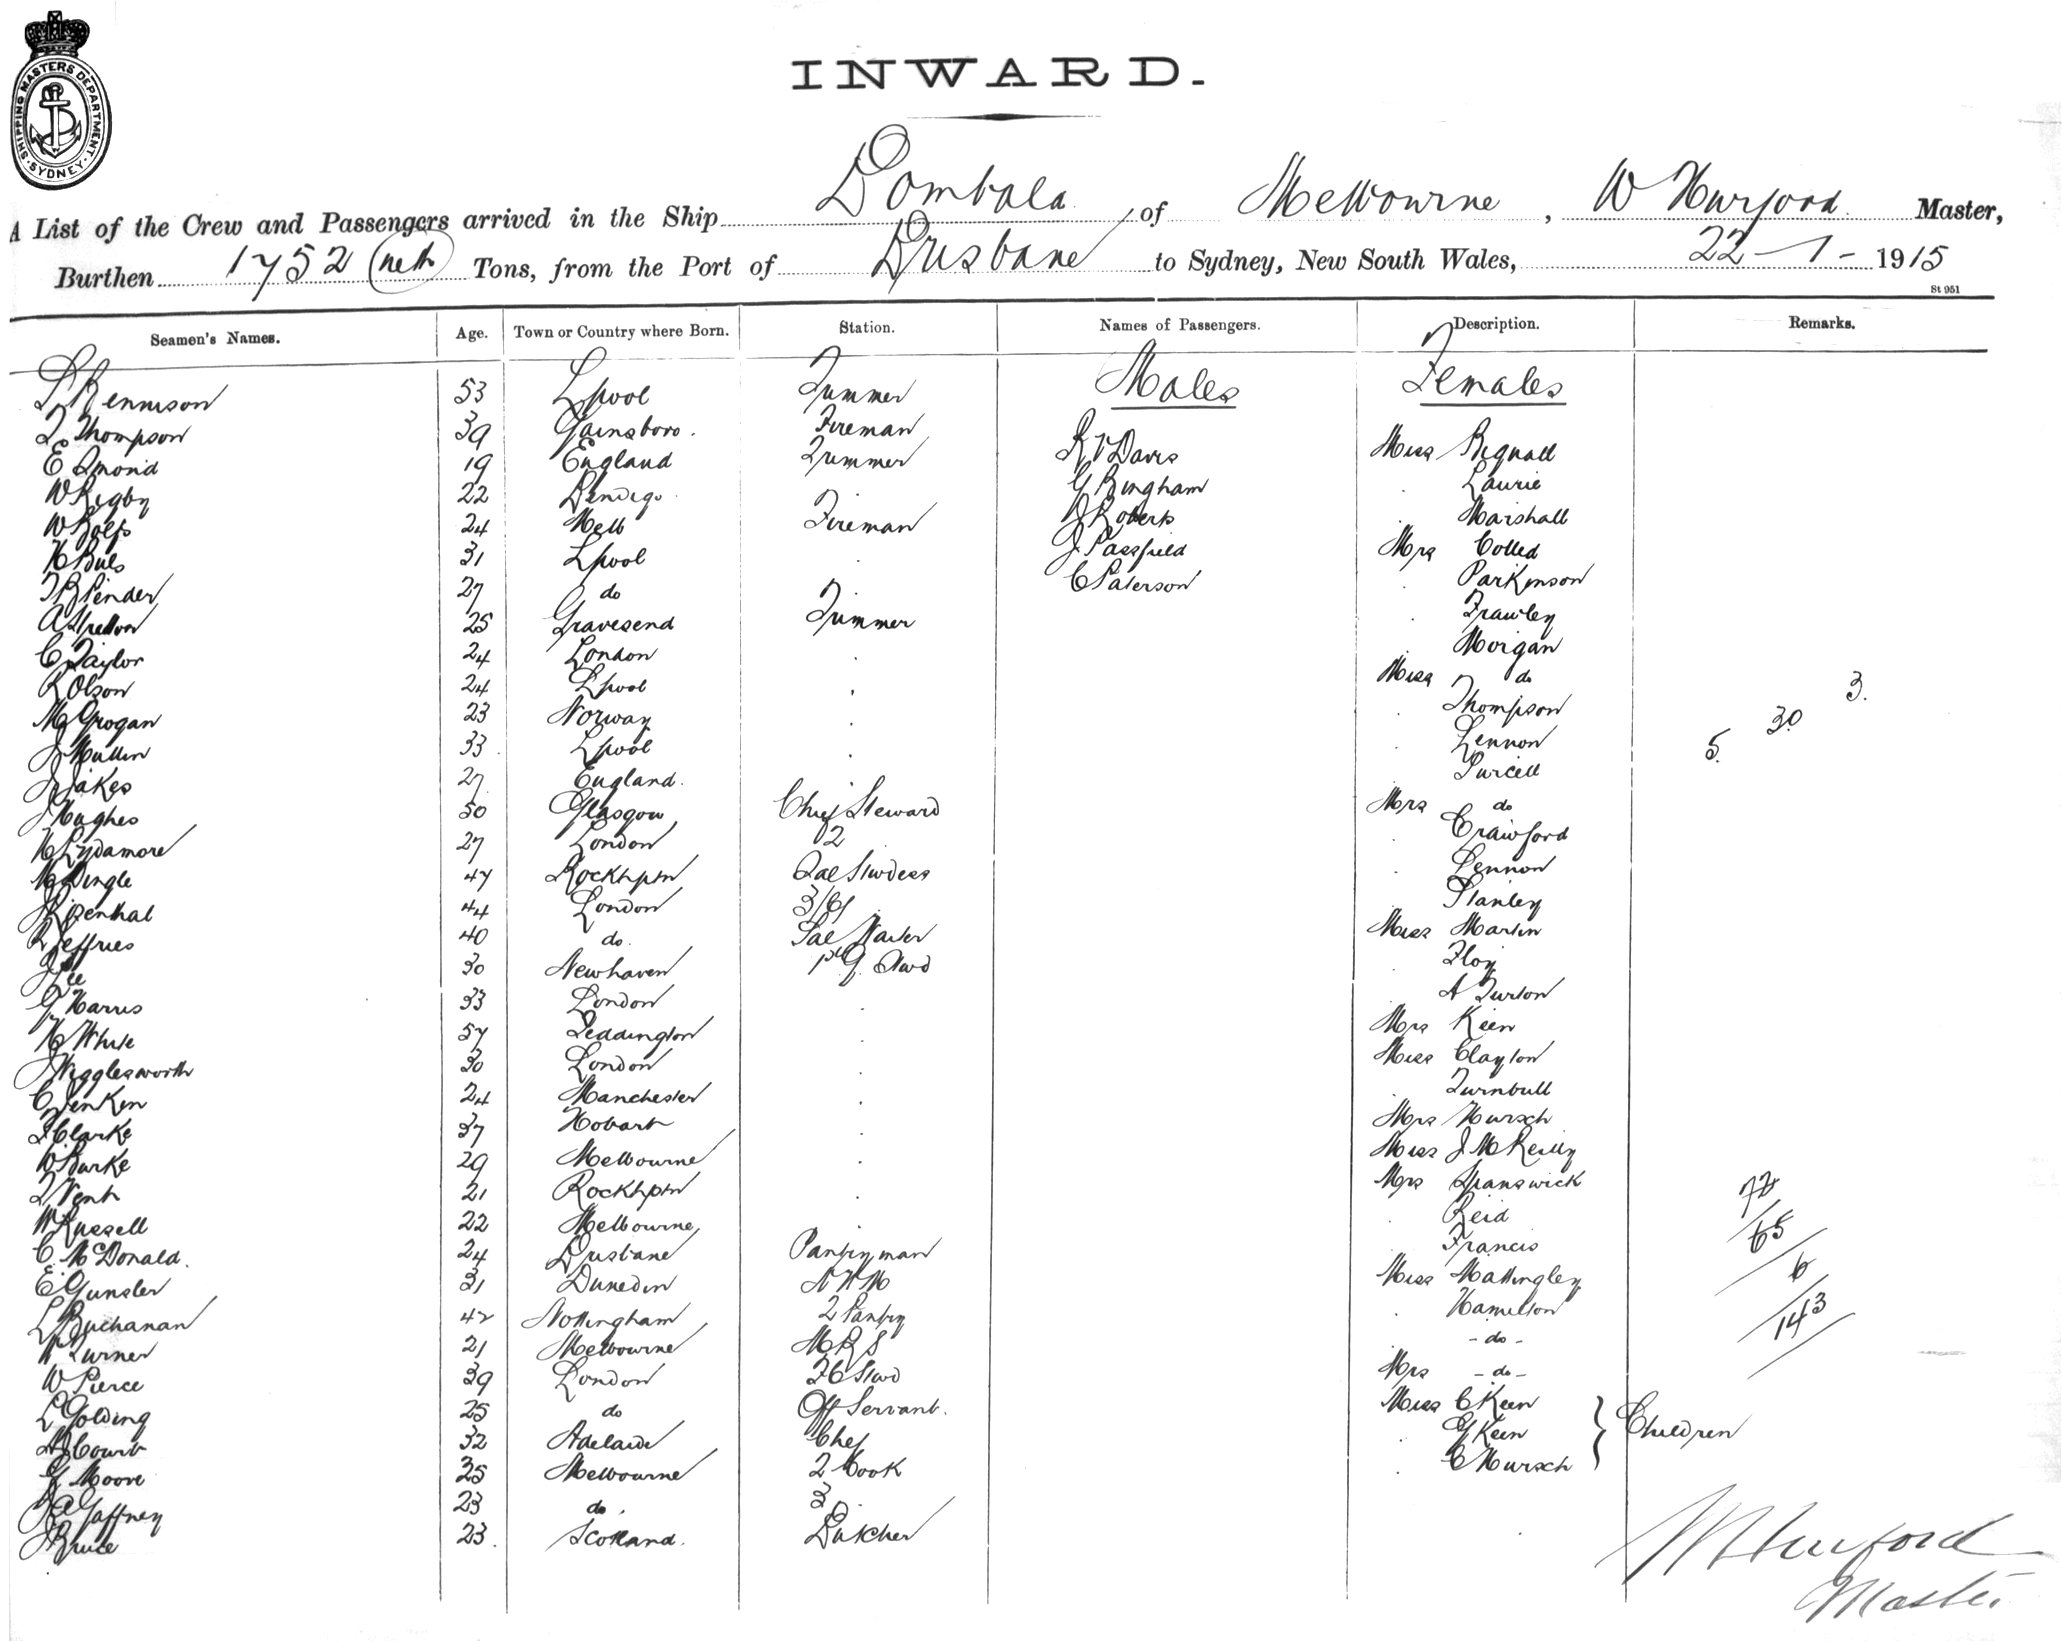 SHIPPING MASTERS DEPARTMENT
SYDNEY
INWARD.
A List of the Crew and Passengers arrived in the Ship Bombala, of Melbourne, W Hurford Master,
Burthen 1752 (nett) Tons, from the Port of Brisbane to Sydney, New South Wales, 22-1-1915
St 951
Seamen's Names. Age. Town or Country where Born. Station. Names of Passengers. Description. Remarks.
Rennison 53 Lpool Trimmer Males Females
T Thompson 39 Gainsboro. Fireman
E Omond 19 England Trimmer R V Davis Miss Bignall
W Rigby 22 Bendigo G Bingham Laurie
W Rolfs 24 Melb Fireman J Roberts Marshall
H 31 Lpool J Passfield Mrs Colled
T R Pinder 27 do C Paterson Parkinson
A 25 Gravesend Trimmer Frawley
C Taylor 24 London Morgan
R Olson 24 Lpool Miss do
M Grogan 23 Norway Thompson 3.
J Mullin 33 Lpool Lennon 5. 30
J Jakes 27 England. Purcell
J Hughes 50 Glasgow Chief Steward Mrs do
H Lydamore 27 London 2 Crawford
M Dingle 47 Rockhptn Sal Stwdess Lennon
J Rosenthal 44 London Stanley
R Jeffries 40 do. Sal Waiter Miss Martin
J Lee 30 Newhaven 1st G. Stwd Floy
G Harris 33 London A Turton
H White 57 Teddington Mrs Keen
J Wigglesworth 30 London Miss Clayton
C Jenken 24 Manchester Turnbull
F Clarke 37 Hobart Mrs Hursch
W Burke 29 Melbourne Miss J M Reilly
T Vent 21 Rockhptn Mrs Spanswick 72
W Russell 22 Melbourne Reid 65
C. McDonald. 24 Brisbane Pantryman Francis
E. Gunsler 31 Dunedin N W M Miss Mattingley 6
L Buchanan 42 Nottingham 2 Pantry Hamilton 143
W Turner 21 Melbourne M R S - do -
W Pierce 39 London F C Stwd Mrs - do -
L Golding 25 do Off Servant. Miss C Keen
32 Adelaide Chef G Keen Children
G Moore 25 Melbourne 2 Cook C Hursch
Gaffney 23 do. 3
J Bruce 23. Scotland. Butcher
W Hurford
Master